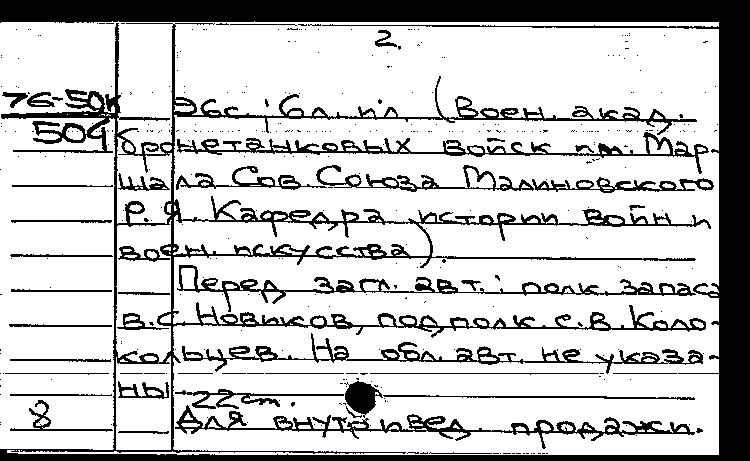 2.
76-50к
504
96с.; 6л. ил. (Воен. акад.
бронетанковых войск им. Мар-
шала Сов. Союза Малиновского
Р.Я. Кафедра истории войн и
воен. искусства).
Перед загл. авт.: полк. запаса
В.С. Новиков, подполк. С.В. Коло-
кольцев. На обл. авт. не указа-
ны 22 см.
8 Для внутривед. продажи.